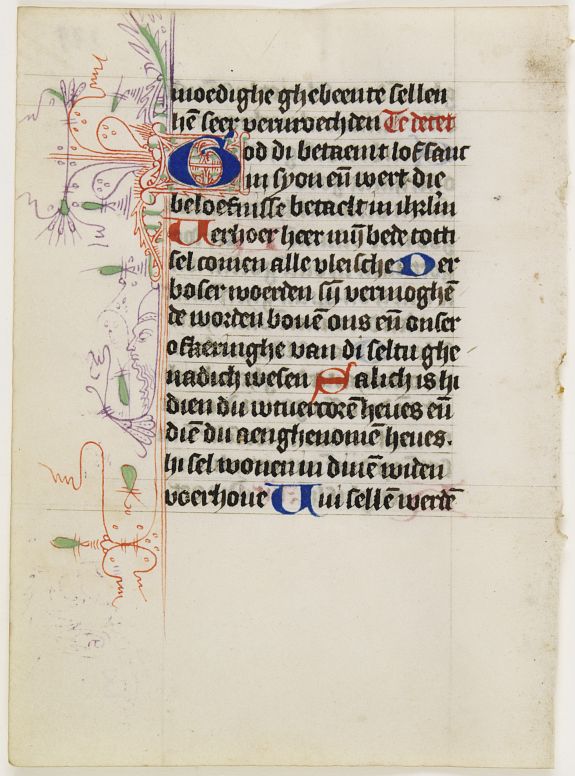 moedighe ghebeente sellen
hē seer vervroechden Te decet
God di betaemt lofsanc
in syon eñ wert die
beloefnisse betaelt in ihrlm̄
Verhoer heer mijn bede tot ti
sel comen alle vleische Der
boser woerden sijn vermoghē
de worden bouē ons eñ onser
ofkeeringhe van di seltu ghe
nadich wesen Salich is hi
dien du wtuercorē heues eñ
diē du aenghenomē heues.
hi sel wonen in dinē widen
voerhoue Wi sellē werdē